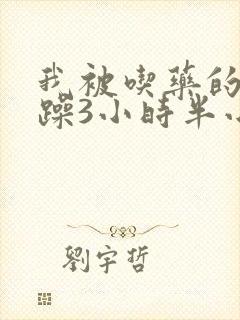 我被喫藥的
躁3小時半
劉宇哲